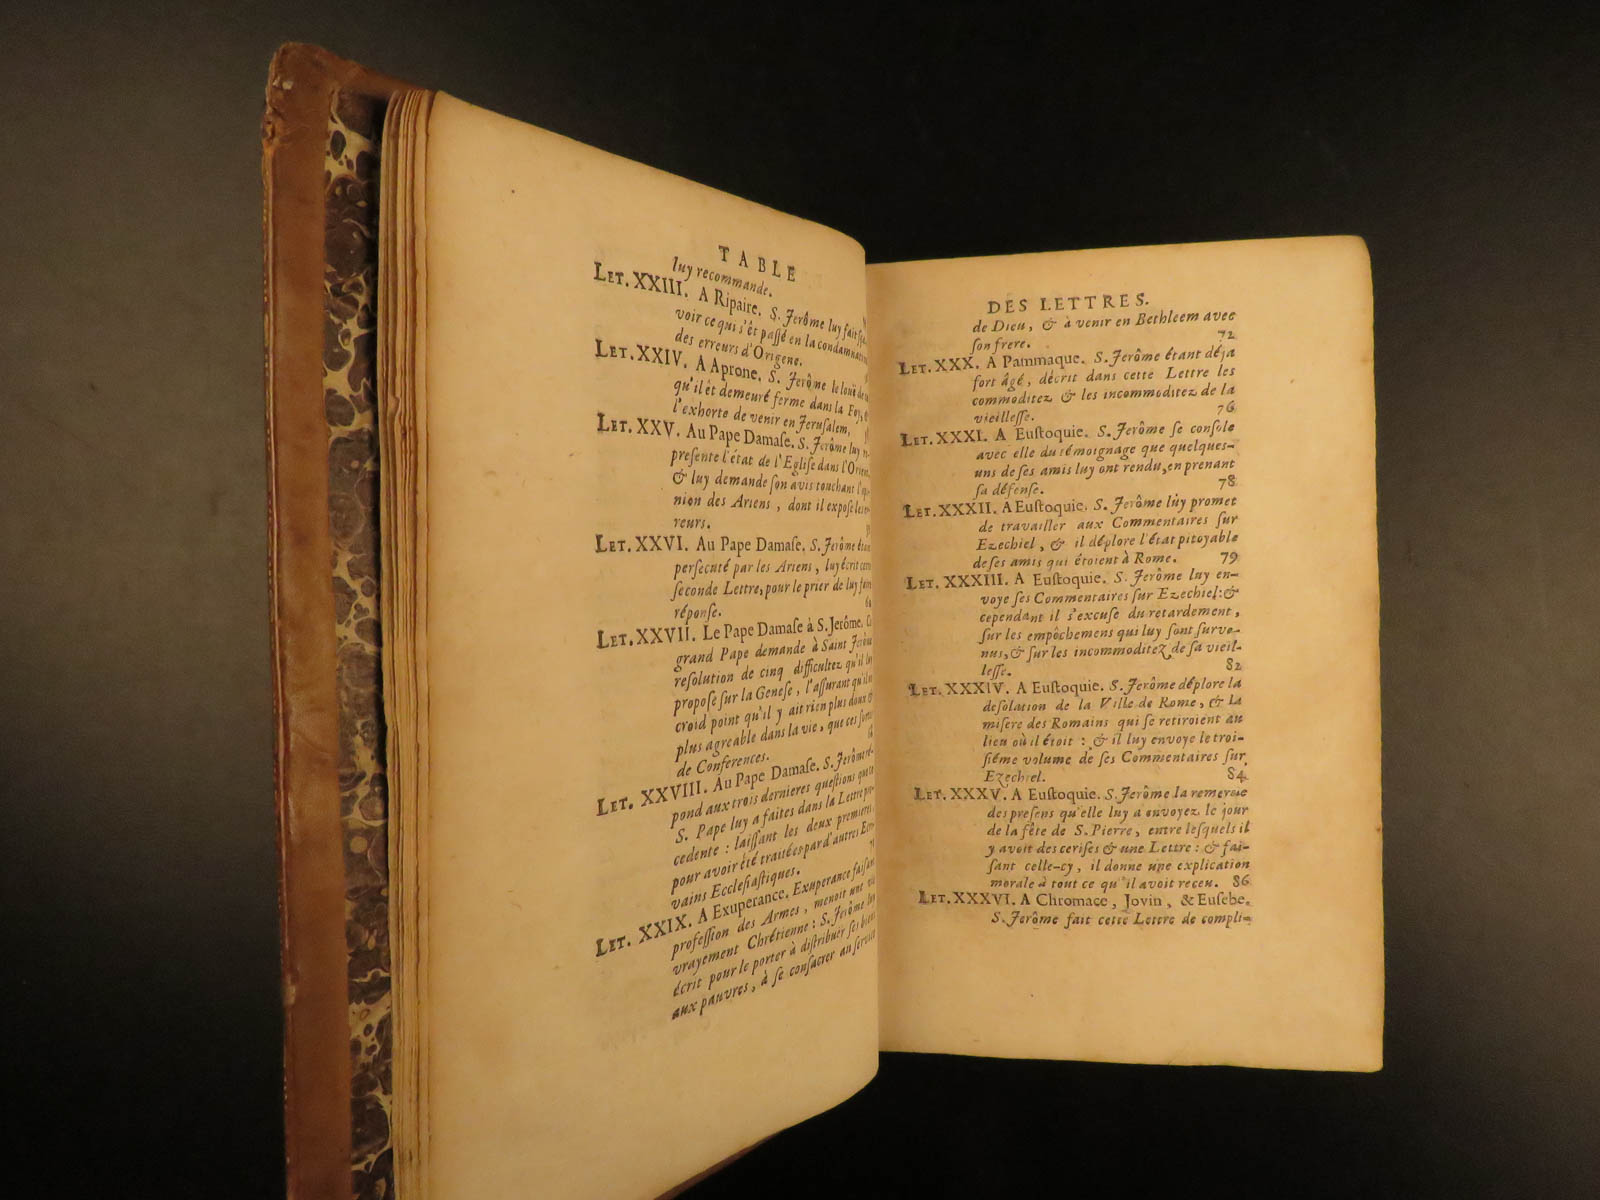 TABLE
luy recommande.
LET. XXIII. A Ripaire. S. Jerôme luy fait
voir ce qui s'êt passé en la condamnation
des erreurs d'Origene.
LET. XXIV. A Aprone. S. Jerôme le louë de ce
qu'il êt demeuré ferme dans la Foy, &
l'exhorte de venir en Jerusalem.
LET. XXV. Au Pape Damase. S. Jerôme luy re-
presente l'état de l'Eglise dans l'Orient,
& luy demande son avis touchant l'opi-
nion des Ariens, dont il expose les er-
reurs.
LET. XXVI. Au Pape Damase. S. Jerôme étant
persecuté par les Ariens, luy écrit cette
seconde Lettre, pour le prier de luy faire
réponse.
LET. XXVII. Le Pape Damase à S. Jerôme. Ce
grand Pape demande à Saint Jerôme
resolution de cinq difficultez qu'il luy
propose sur la Genese, l'assurant qu'il ne
croid point qu'il y ait rien plus doux &
plus agreable dans la vie, que ces sortes
de Conferences.
LET. XXVIII. Au Pape Damase. S. Jerôme ré-
pond aux trois dernieres questions que ce
S. Pape luy a faites dans la Lettre pre-
cedente : laissant les deux premieres,
pour avoir été traitées par d'autres Ecri-
vains Ecclesiastiques.
LET. XXIX. A Exuperance. Exuperance faisant
profession des Armes, menoit une vie
vrayement Chrétienne : S. Jerôme luy
écrit pour le porter à distribuer ses biens
aux pauvres, à se consacrer au service
DES LETTRES.
de Dieu, & à venir en Bethleem avec
son frere. 72
LET. XXX. A Pammaque. S. Jerôme étant déja
fort âgé, décrit dans cette Lettre les
commoditez & les incommoditez de la
vieillesse. 76
LET. XXXI. A Eustoquie. S. Jerôme se console
avec elle du témoignage que quelques-
uns de ses amis luy ont rendu, en prenant
sa défense. 78
LET. XXXII. A Eustoquie. S. Jerôme luy promet
de travailler aux Commentaires sur
Ezechiel, & il déplore l'état pitoyable
de ses amis qui étoient à Rome. 79
LET. XXXIII. A Eustoquie. S. Jerôme luy en-
voye ses Commentaires sur Ezechiel : &
cependant il s'excuse du retardement,
sur les empêchemens qui luy sont surve-
nus, & sur les incommoditez de sa vieil-
lesse. 82
LET. XXXIV. A Eustoquie. S. Jerôme déplore la
desolation de la Ville de Rome, & la
misere des Romains qui se retiroient au
lieu où il étoit : & il luy envoye le troi-
siéme volume de ses Commentaires sur
Ezechiel. 84
LET. XXXV. A Eustoquie. S. Jerôme la remercie
des presens qu'elle luy a envoyez le jour
de la fête de S. Pierre, entre lesquels il
y avoit des cerises & une Lettre : & fai-
sant celle-cy, il donne une explication
morale à tout ce qu'il avoit receu. 86
LET. XXXVI. A Chromace, Jovin, & Eusebe.
S. Jerôme fait cette Lettre de compli-